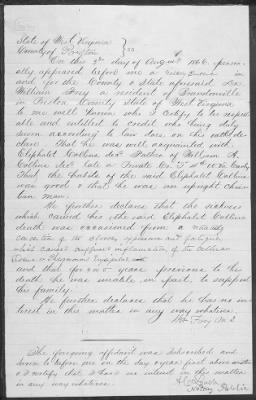 State of West Virginia
County of Preston } SS.
On this 3rd day of August 1866, person-
ally appeared before me a Notary Public in
and for the County & State aforesaid
William Frey a resident of Brandonville
in Preston County State of West Virginia
to me well known who I certify to be respect-
able and entitled to credit who being duly
sworn according to law does on his oath de-
clare That he was well acquainted with
Eliphalet Collins dec'd Father of William R.
Collins dec'd late a Private Co.
That the habits of the said Eliphalet Collins
was good & that he was an upright chris-
tian man.
He further declares that the sickness
which caused the said Eliphalet Collins
death was occasioned from a
of the exposure and fatigue
inflammation of the cellular
tissue or Phlegmonous Erysipelas
and that for years previous to his
death he was unable, in part, to support
his family.
He further declares that he has no in-
terest in this matter in any way whatever.
Wm Frey M.D
The foregoing affidavit was subscribed and
sworn to before me on the day & year first above written
& I certify that I have no interest in this matter
in any way whatever.
Notary Public